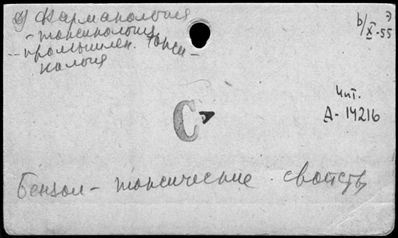 Фармакология
- токсикология
-- промышлен. токси-
кология
b/X-55
Чит.
А-14216
С
Бензол - токсические свойств